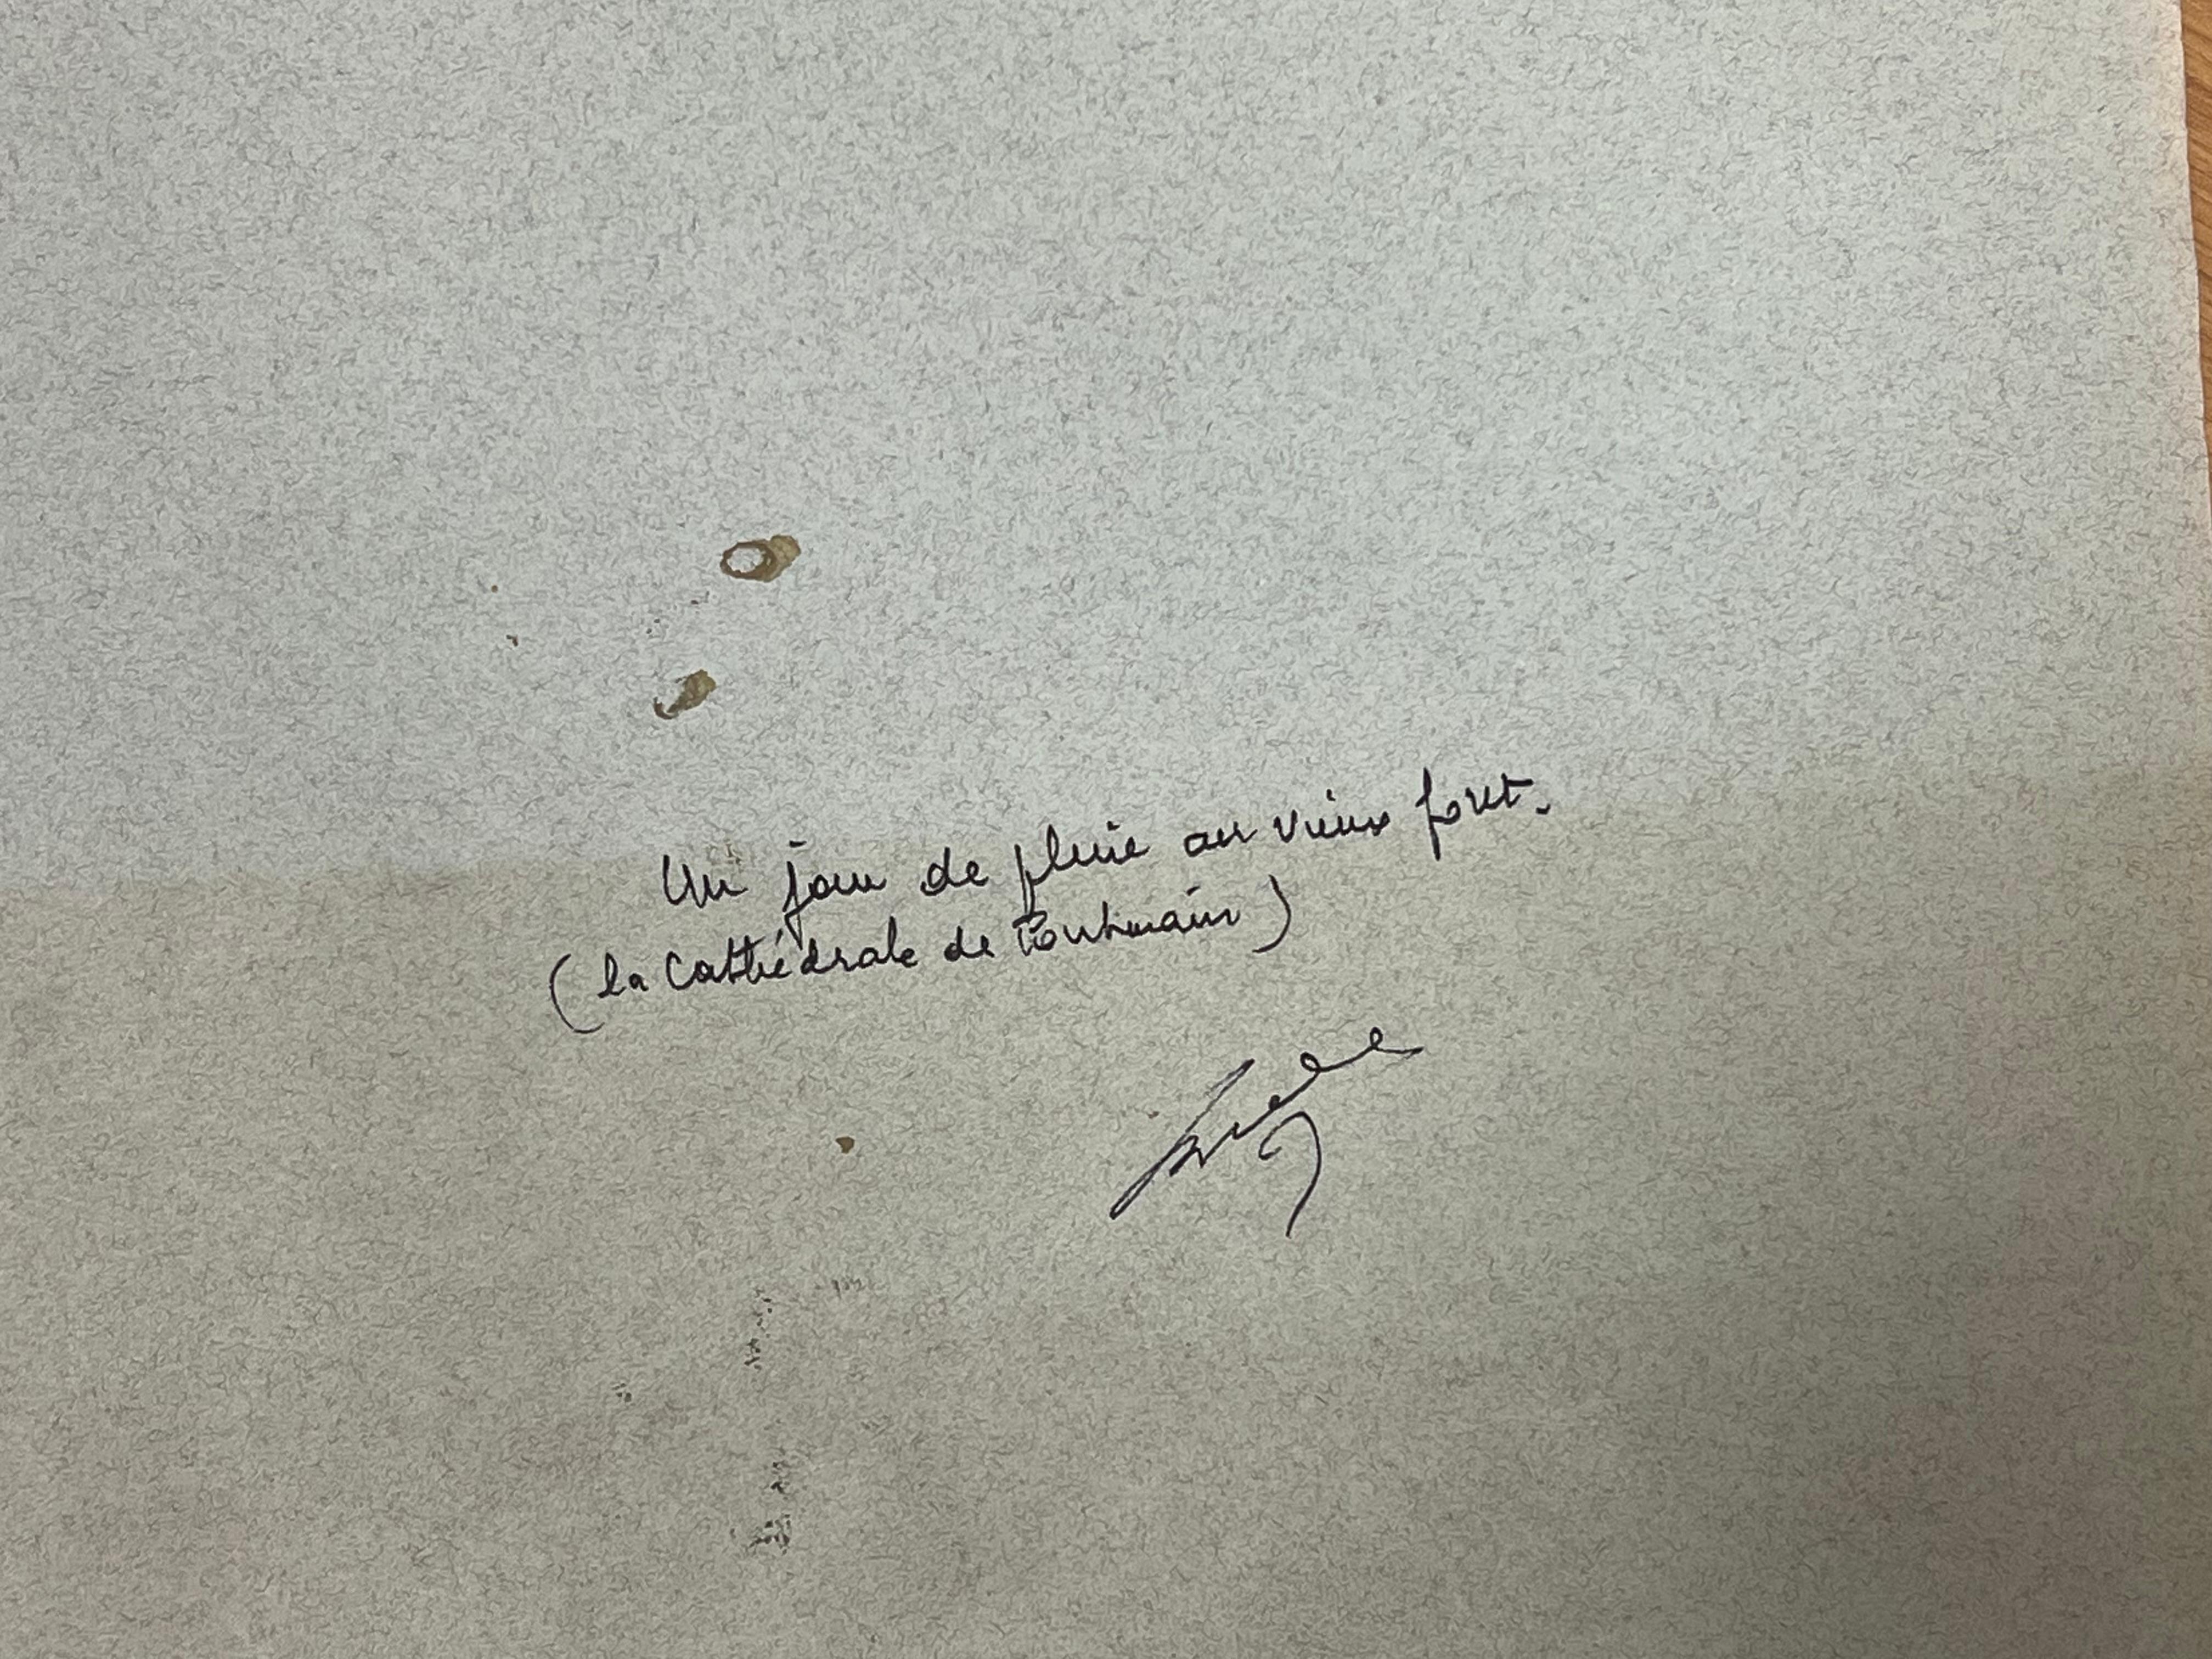 Un jour de pluie au vieux foret.
(la Cathédrale de Pontmain)